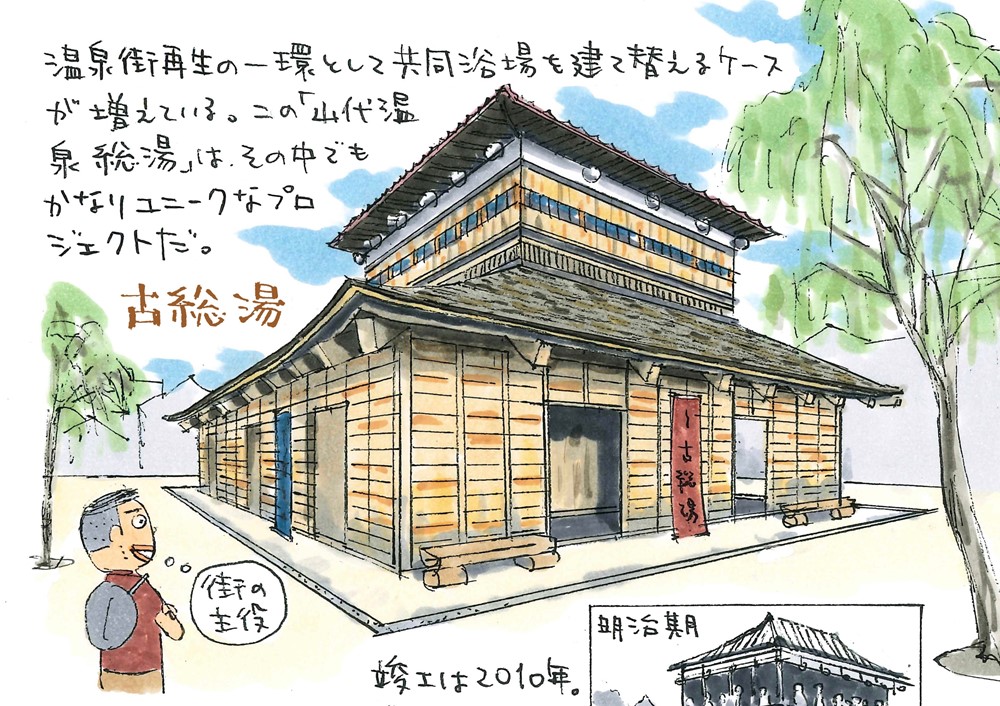 温泉街再生の一環として共同浴場を建て替えるケース
が増えている。この「山代温
泉総湯」は、その中でも
かなりユニークなプロ
ジェクトだ。
古総湯
古総湯
街の
主役
明治期
竣工は2010年。